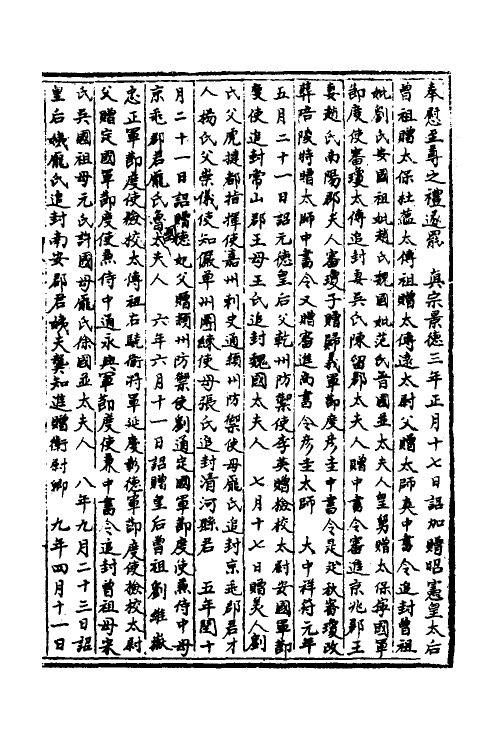 奉慰至尊之禮遂罷　真宗景德三年正月十七日詔加贈昭憲皇太后
曾祖贈太保杜蘊太傅祖贈太傅遠太尉父贈太師爽中書令追封曾祖
妣劉氏安國祖妣趙氏魏國妣范氏晉國並太夫人皇舅贈太保寧國軍
節度使審瓊太傅追封妻吳氏陳留郡太夫人贈中書令審進京兆郡王
妻趙氏南陽郡夫人審瓊子贈歸義軍節度彥圭中書令是秋審瓊改
葬陪陵特贈太師中書令又贈審進尚書令彥圭太師　大中祥符元年
五月二十一日詔元德皇后父乾州防禦使李英贈檢校太尉安國軍節
度使追封常山郡王母王氏追封魏國太夫人　七月十七日贈美人劉
氏父虎捷都指揮使嘉州刺史通潁州防禦使母龐氏追封京兆郡君才
人楊氏父崇儀使知儼單州團練使母張氏追封清河縣君　五年閏十
月二十一日詔贈德妃父贈潁州防禦使劉通定國軍節度使兼侍中母
京兆郡君龐氏魯國太夫人　六年六月十一日詔贈皇后曾祖劉維嶽
忠正軍節度使檢校太傅祖右驍衛將軍延慶彰德軍節度使檢校太尉
父贈定國軍節度使兼侍中通永興軍節度使兼中書令追封曾祖母宋
氏吳國祖母元氏許國母龐氏徐國並太夫人　八年九月二十三日詔
皇后姨龐氏追封南安郡君姨夫龔知進贈衛尉卿　九年四月十一日